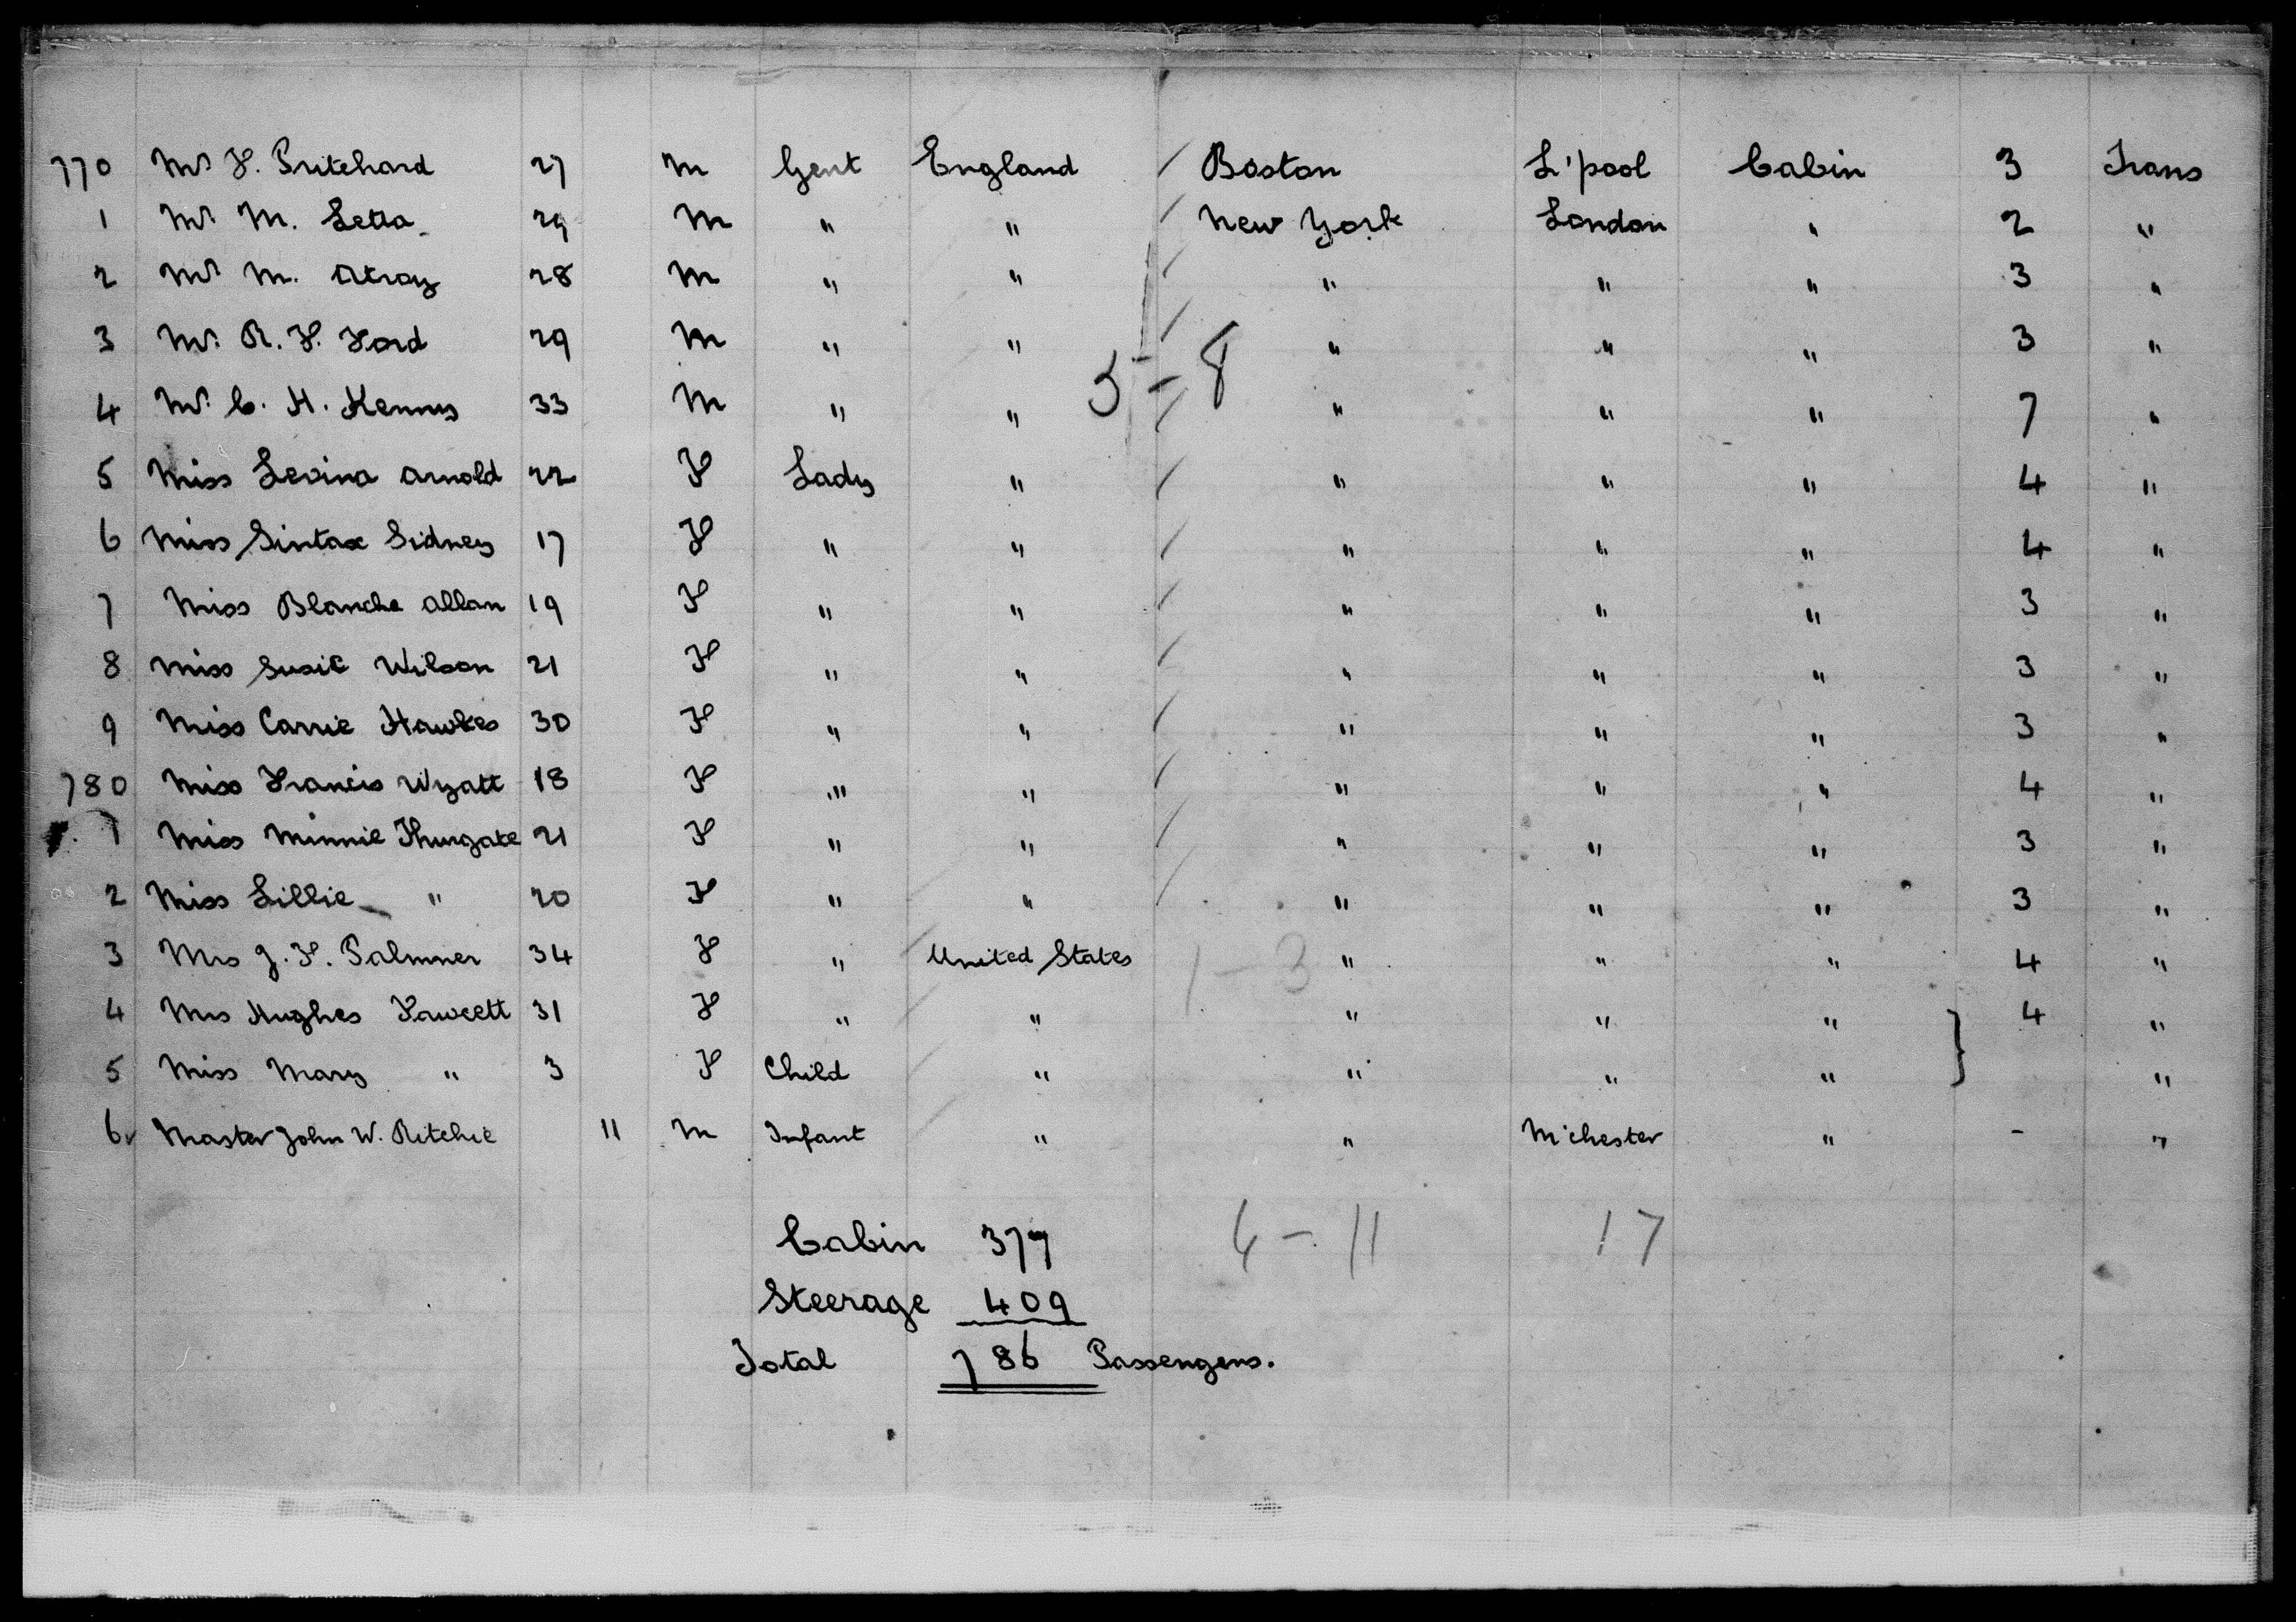 770 Mr. F. Pritchard 27 M Gent England / Boston L'pool Cabin 3 Trans
1 Mr. M. Letta 29 M " " / New York London " 2 "
2 Mr. M. Atroy 28 M " " / " " " 3 "
3 Mr. R. F. Ford 29 M " " / " " " 3 "
5 - 8
4 Mr. C. H. Kenny 33 M " " / " " " 7 "
5 Miss Levina Arnold 22 F Lady " / " " " 4 "
6 Miss Sintax Sidney 17 F " " / " " " 4 "
7 Miss Blanche Allan 19 F " " / " " " 3 "
8 Miss Susie Wilson 21 F " " / " " " 3 "
9 Miss Carrie Hawkes 30 F " " / " " " 3 "
780 Miss Francis Wyatt 18 F " " / " " " 4 "
1 Miss Minnie Thurgate 21 F " " / " " " 3 "
2 Miss Lillie " 20 F " " / " " " 3 "
3 Mrs J. F. Palmner 34 F " United States 1 - 3 " " " 4 "
4 Mrs Hughes Fawcett 31 F " " " " " } 4 "
5 Miss Mary " 3 F Child " " " " "
6 Master John W. Ritchie 11 M Infant " " M'chester " - "
Cabin 377 6 - 11 17
Steerage 409
Total 786 Passengers.